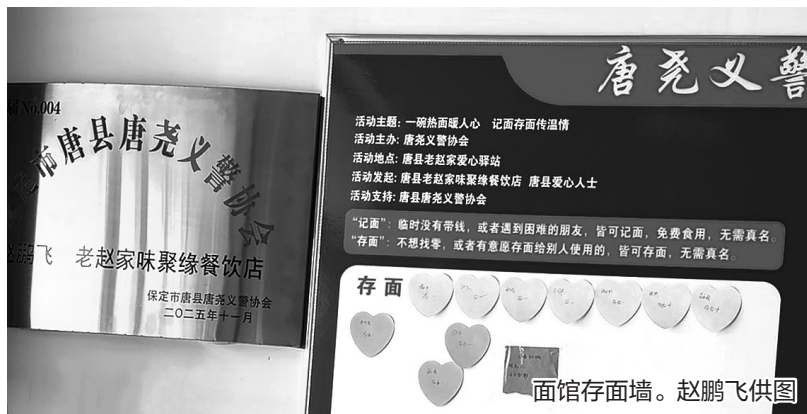 届No.004
市唐县唐尧义警协会
鹏飞 老赵家味聚缘餐饮店
保定市唐县唐尧义警协会
二〇二五年十一月
唐尧义警
活动主题：一碗热面暖人心 记面存面传温情
活动主办：唐尧义警协会
活动地点：唐县老赵家爱心驿站
活动发起：唐县老赵家味聚缘餐饮店 唐县爱心人士
活动支持：唐县唐尧义警协会
“记面”：临时没有带钱，或者遇到困难的朋友，皆可记面，免费食用，无需真名。
“存面”：不想找零，或者有意愿存面给别人使用的，皆可存面，无需真名。
存面
面馆存面墙。赵鹏飞供图